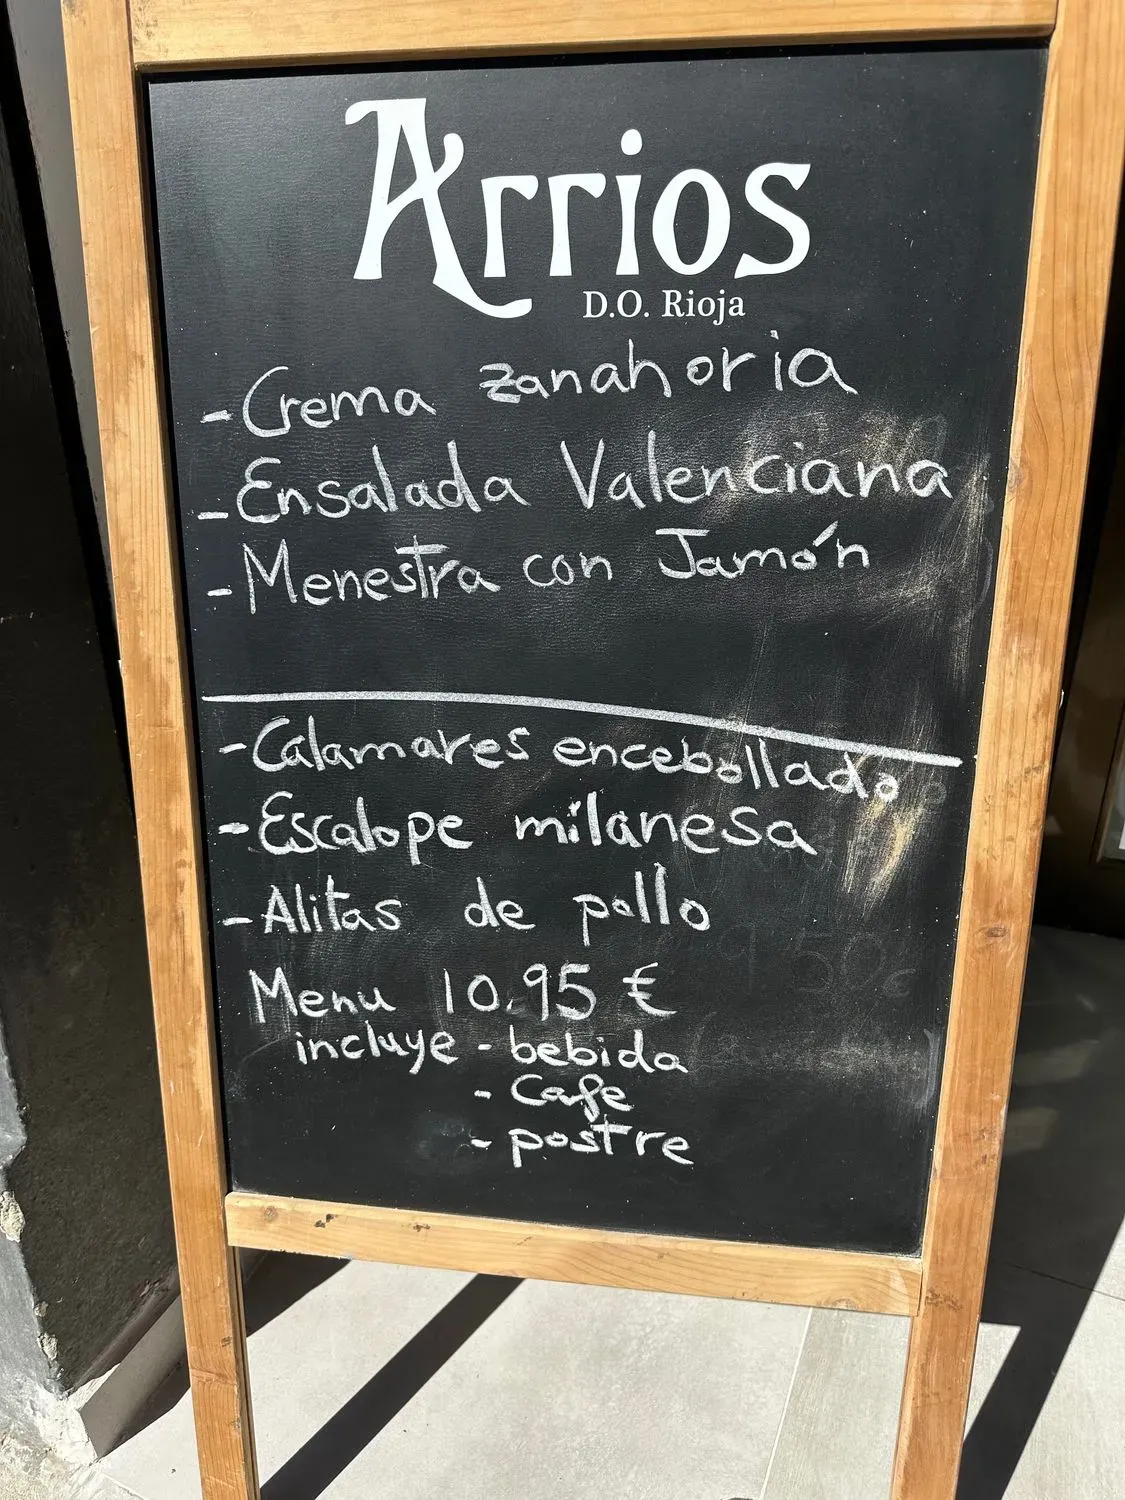 Arrios
D.O. Rioja
- Crema zanahoria
- Ensalada Valenciana
- Menestra con Jamón
- Calamares encebollado
- Escalope milanesa
- Alitas de pollo
Menu 10.95 €
incluye - bebida
- Cafe
- postre